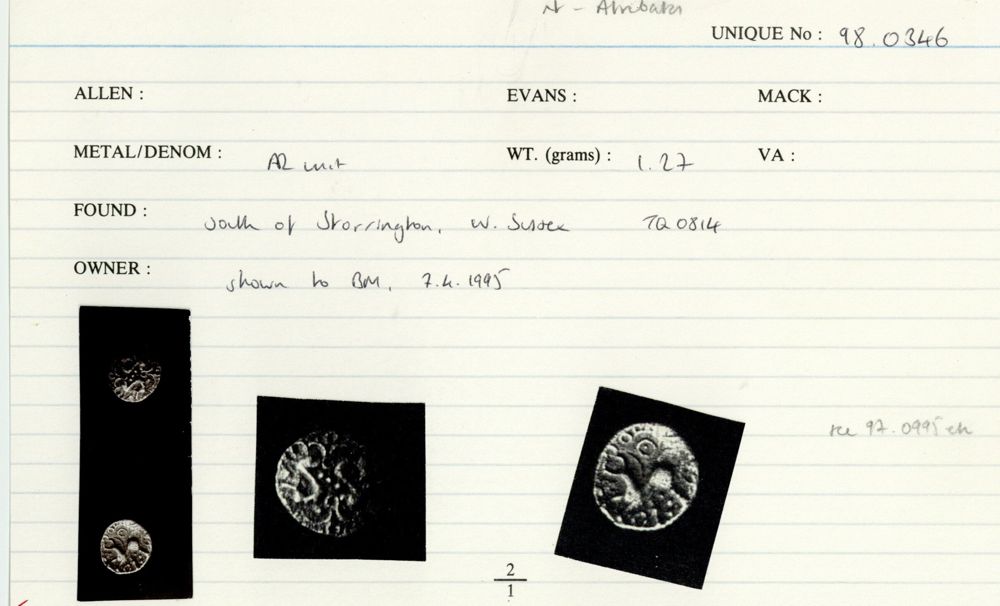 Atrebatic
UNIQUE No : 98.0346
ALLEN : EVANS : MACK :
METAL/DENOM : AR unit WT. (grams) : 1.27 VA :
FOUND : South of Storrington, W. Sussex TQ 0814
OWNER : shown to BM, 7.4.1995
see 97.0995 etc
2
1